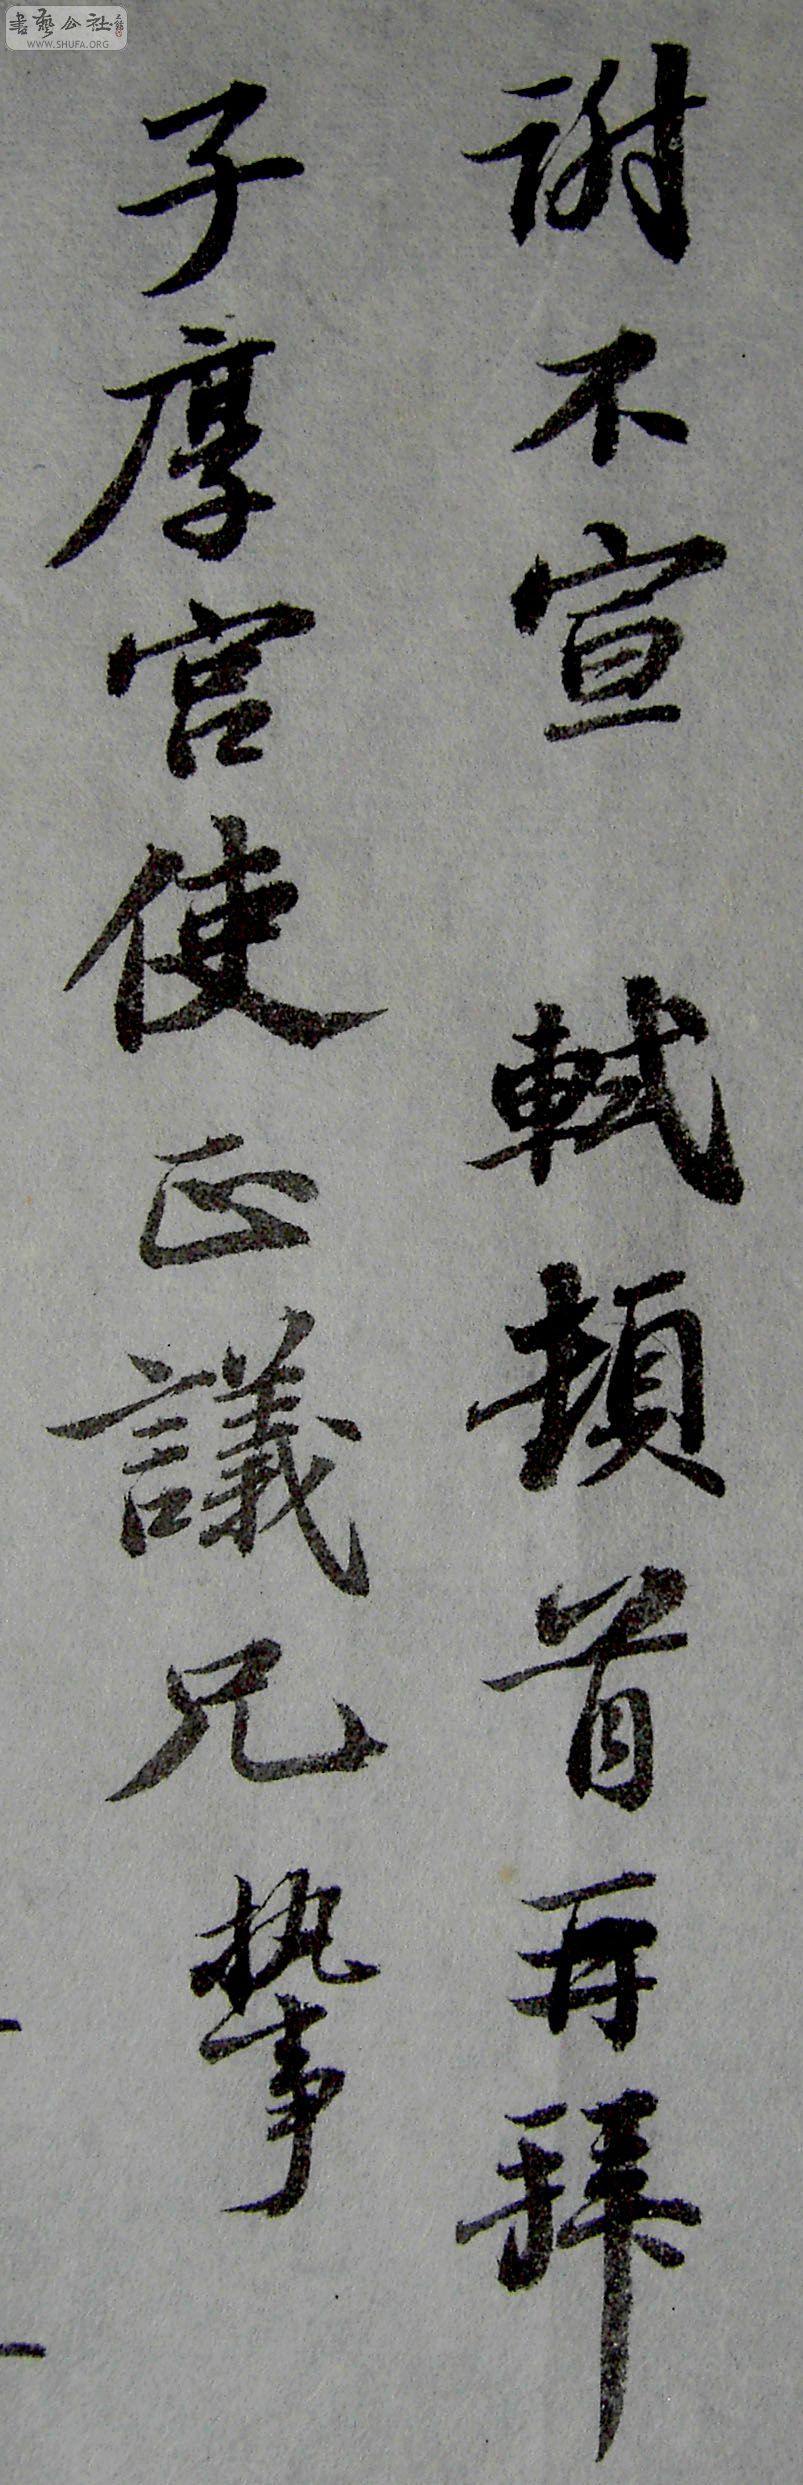 謝不宣 軾頓首再拜
子厚宮使正議兄執事
書藝公社
WWW.SHUFA.ORG